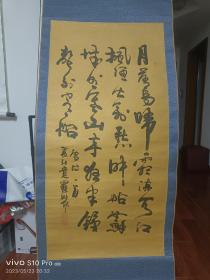 月落烏啼霜滿天江
楓漁火對愁眠姑蘇
城外寒山寺夜半鐘
聲到客船
vivo S10 Pro
2023/05/23 13:36